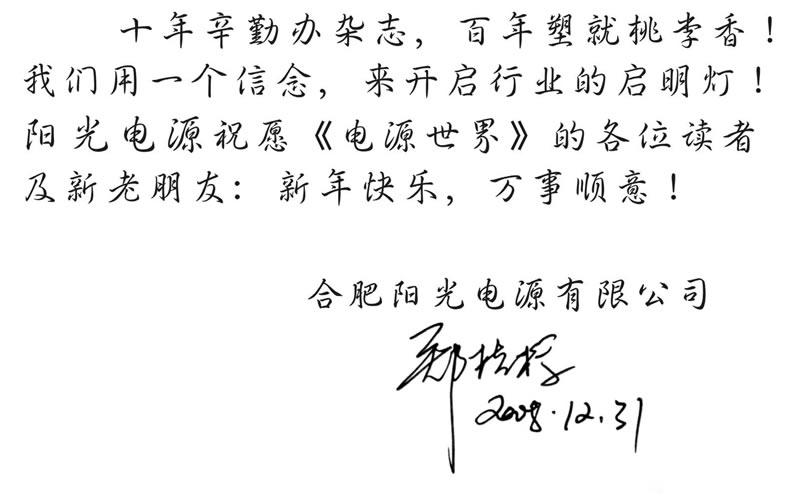 十年辛勤办杂志，百年塑就桃李香！
我们用一个信念，来开启行业的启明灯！
阳光电源祝愿《电源世界》的各位读者
及新老朋友：新年快乐，万事顺意！
合肥阳光电源有限公司
2008.12.31